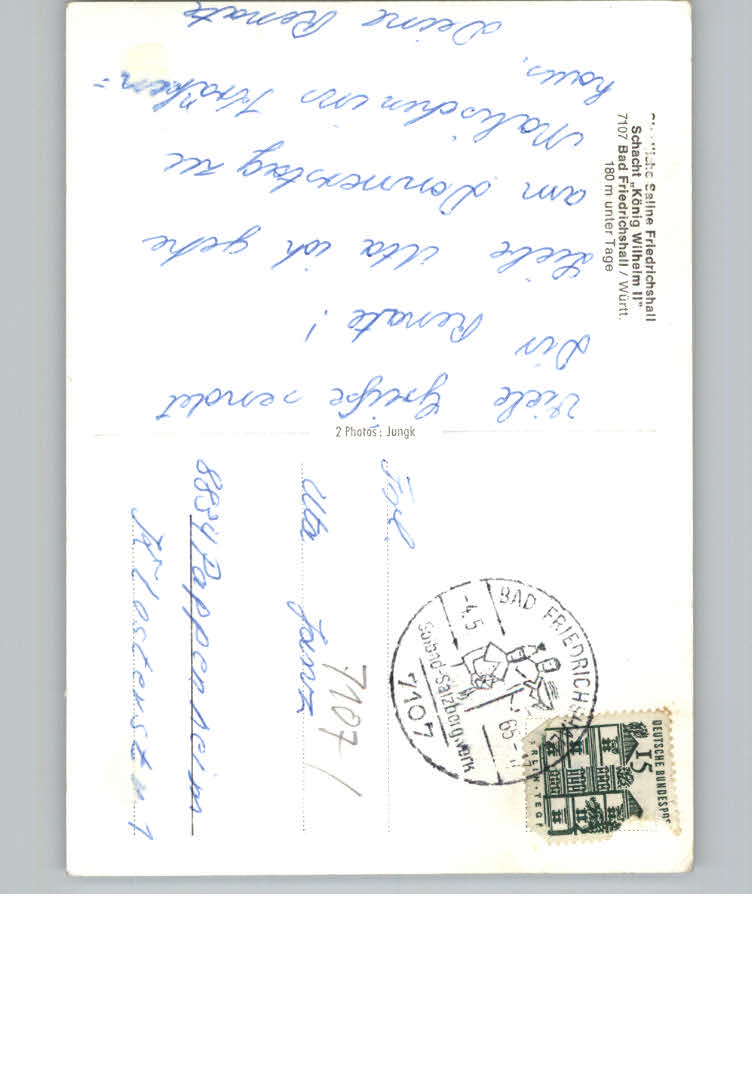 Saline Friedrichshall
Schacht „König Wilhelm II"
7107 Bad Friedrichshall / Württ.
180 m unter Tage
Viele Grüße sendet
Dir Renate!
Liebe Uta ich gehe
am Donnerstag zu
haus,
Deine Renate
2 Photos: Jungk
Frl.
Uta Janz
8834 Pappenheim
Klosterstr 1
7107/
BAD FRIEDRICHSHALL
-4.5 65-
Solbad-Salzbergwerk
7107
DEUTSCHE BUNDESPOST
15
BERLIN-TEGEL